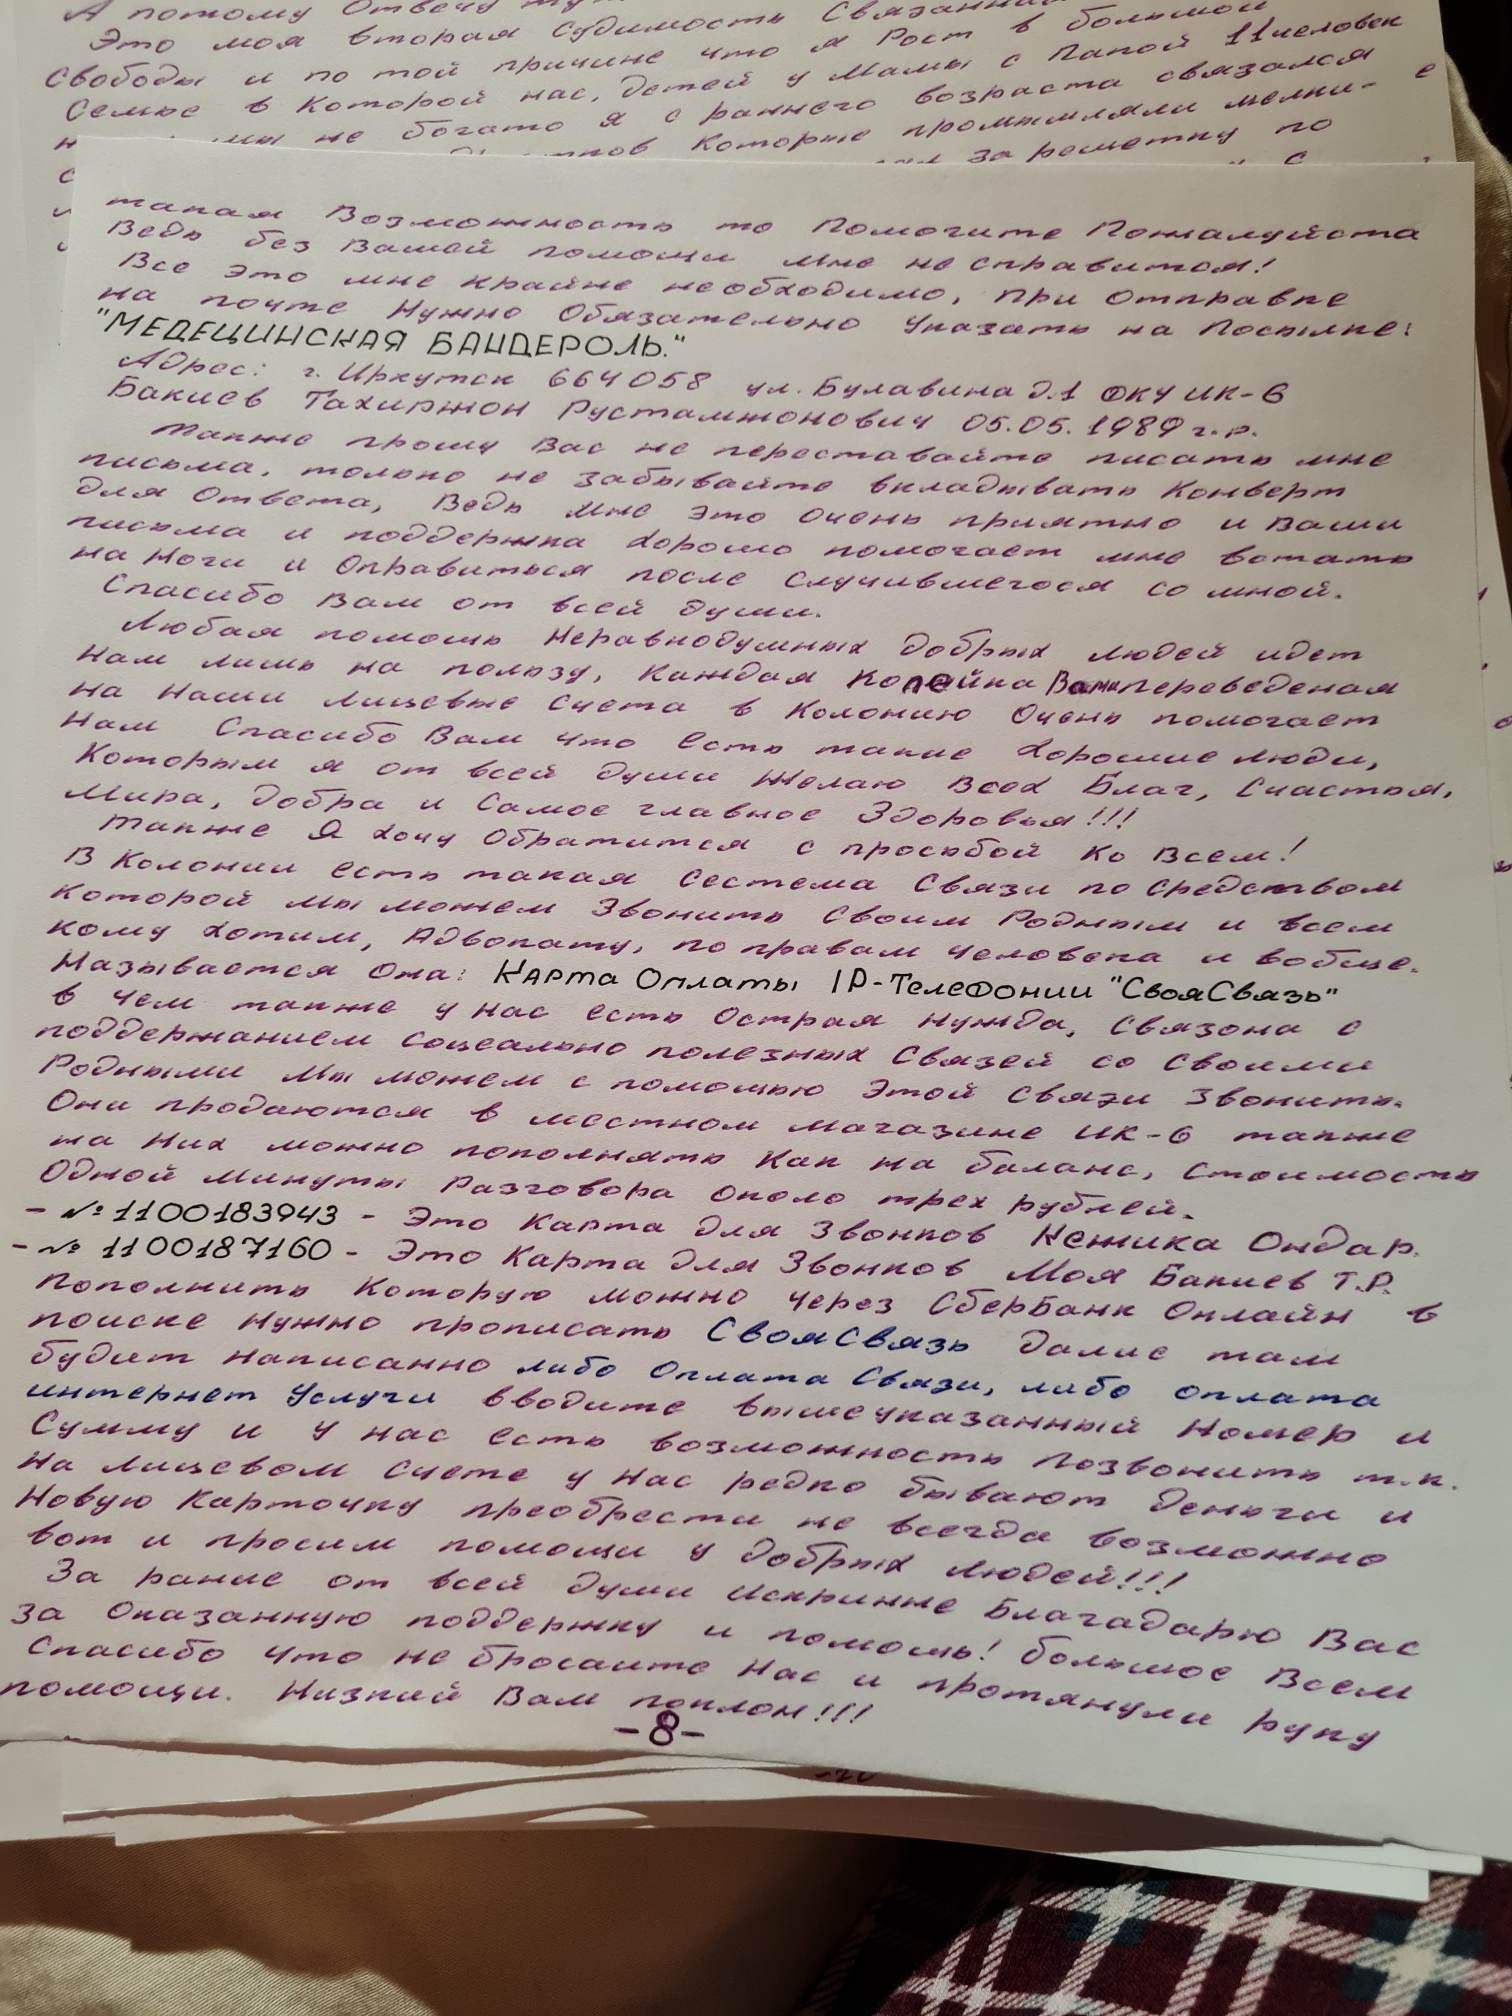 А потому Отвечу
Это моя вторая судимость Связанный
Свободы и по той причине что я Рост в большой
Семье в Которой нас, детей у Мамы с Папой 11человек
мы не богато я с раннего возраста связался
Которые промышляли мелки-
за решетку по
такая Возможность то Помогите Пожалуйста
Ведь без Вашей помощи мне не справится!
Все это мне крайне необходимо, при отправке
на почте Нужно Обязательно Указать на Посылке:
"МЕДЕЦИНСКАЯ БАНДЕРОЛЬ."
Адрес: г. Иркутск 664058 ул. Булавина д.1 ФКУ ИК-6
Бакиев Тахиржон Рустамжонович 05.05.1989 г.р.
Также прошу Вас не переставайте писать мне
письма, только не забывайте вкладывать Конверт
для Ответа, Ведь мне это очень приятно и Ваши
письма и поддержка хорошо помогает мне встать
на Ноги и Оправиться после случившегося со мной.
Спасибо Вам от всей души.
Любая помощь Неравнодушных добрых людей идет
Нам лишь на пользу, Каждая Копейка Вами переведеная
на Наши лицевые счета в Колонию Очень помогает
Нам Спасибо Вам что есть такие хорошие люди,
Которым я от всей души Желаю Всех Благ, Счастья,
Мира, Добра и Самое главное Здоровья!!!
Также Я хочу Обратится с просьбой Ко Всем!
В Колонии есть такая сестема Связи по средством
Которой мы можем Звонить Своим Родным и всем
Кому хотим, Адвокату, по правам человека и вобще.
Называется Она: Карта Оплаты IP-Телефонии "СвояСвязь"
в чем также у Нас есть Острая нужда, связона с
поддержанием социально полезных Связей со своими
Родными Мы можем с помощью этой связи звонить.
Они продаются в местном магазине ИК-6 также
на Них можно пополнять Как на баланс, стоимость
Одной Минуты Разговора около трех рублей.
- № 1100183943 - Это Карта для Звонков Кежика Ондар.
- № 1100187160 - Это Карта для Звонков Моя Бакиев Т.Р.
Пополнить Которую можно через СберБанк Онлайн в
поиске Нужно прописать СвояСвязь далие там
будит Написанно либо Оплата Связи, либо оплата
интернет Услуги вводите вышеуказанный Номер и
Сумму и у нас есть возможность Позвонить т.к.
На лицевом счете у Нас редко бывают деньги и
Новую Карточку преобрести не всегда возможно
вот и просим помощи у добрых людей!!!
За рание от всей души искринне Благадарю Вас
за Оказанную поддержку и помощь! большое Всем
Спасибо что не бросаите Нас и протянули руку
помощи. Низкий Вам поклон!!!
-8-